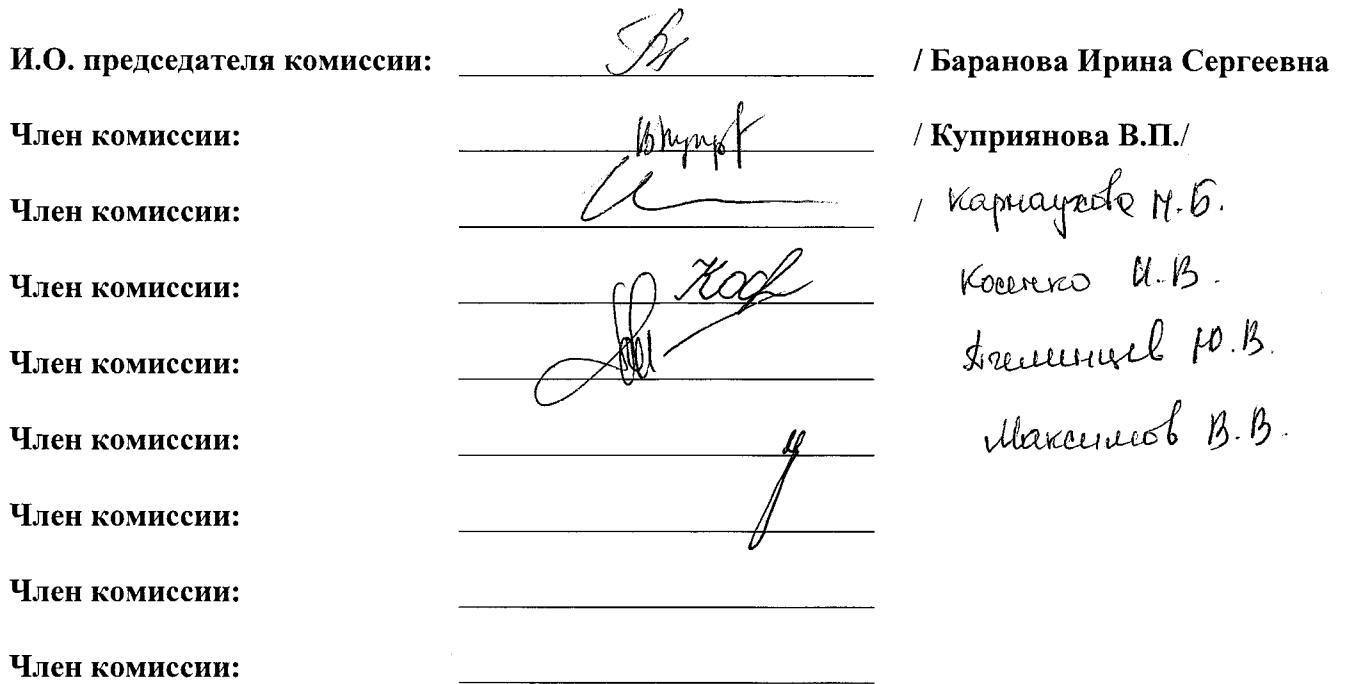 И.О. председателя комиссии: / Баранова Ирина Сергеевна
Член комиссии: / Куприянова В.П./
Член комиссии: / Карнаухова Н.Б.
Член комиссии: Косенко И.В.
Член комиссии: Ю.В.
Член комиссии: Максимов В.В.
Член комиссии:
Член комиссии:
Член комиссии: